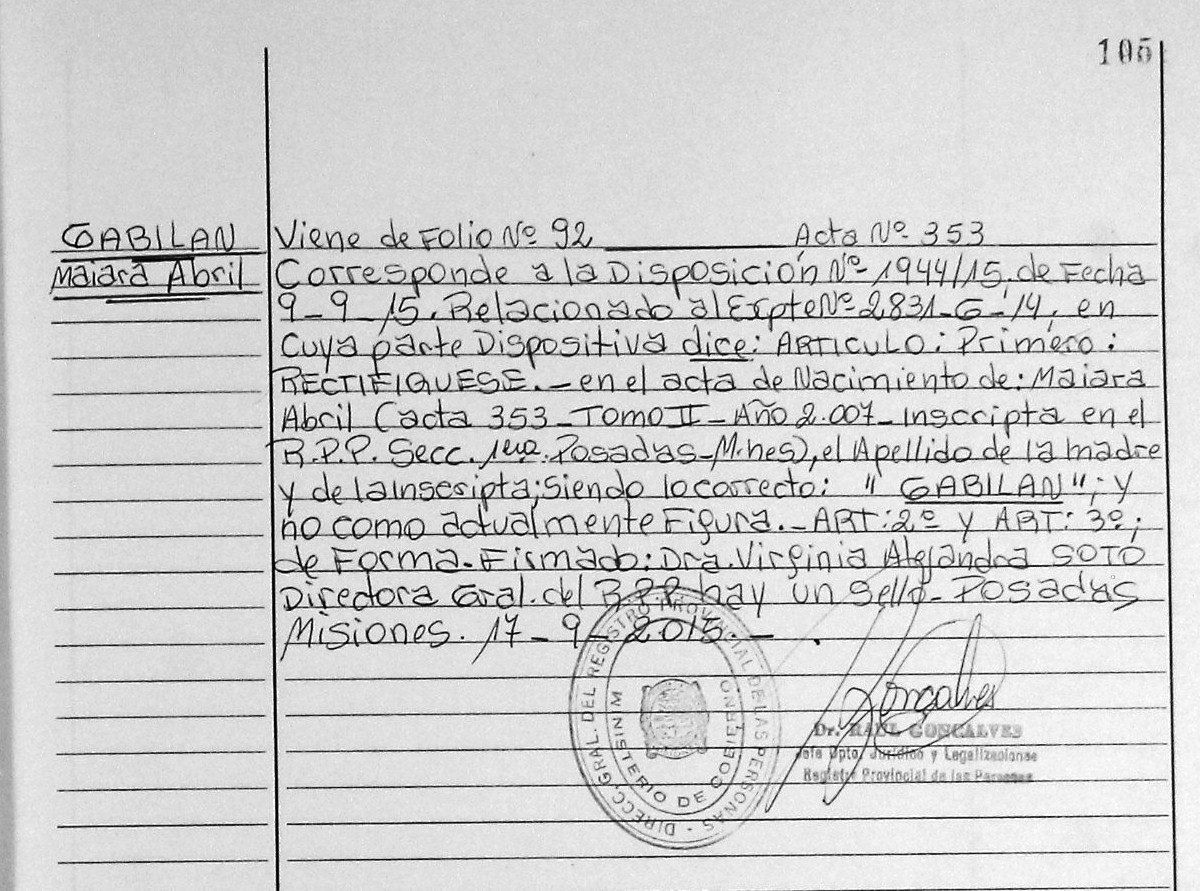 105
GABILAN
Maiara Abril
Viene de Folio Nº 92 Acta Nº 353
Corresponde a la Disposición Nº 1944/15, de Fecha
9-9-15. Relacionado al Expte Nº 2831-G-14, en
Cuya parte Dispositiva dice: ARTICULO: Primero:
RECTIFIQUESE.- en el acta de Nacimiento de: Maiara
Abril (acta 353-TOMO II-Año 2.007-Inscripta en el
R.P.P. Secc. 1era. Posadas-Mnes), el Apellido de la madre
y de la inscripta; Siendo lo correcto: "GABILAN"; y
no como actualmente Figura.- ART: 2º y ART: 3º;
de Forma-Firmado: Dra. Virginia Alejandra SOTO
Directora Gral. del R.P.P. hay un Sello- Posadas
Misiones. 17-9-2015.-
Gonçalves
Dr. RAUL GONCALVES
Jefe Dpto. Jurídico y Legalizaciones
Registro Provincial de las Personas
DIRECC. GRAL. DEL REGISTRO PROVINCIAL DE LAS PERSONAS -
MINISTERIO DE GOBIERNO